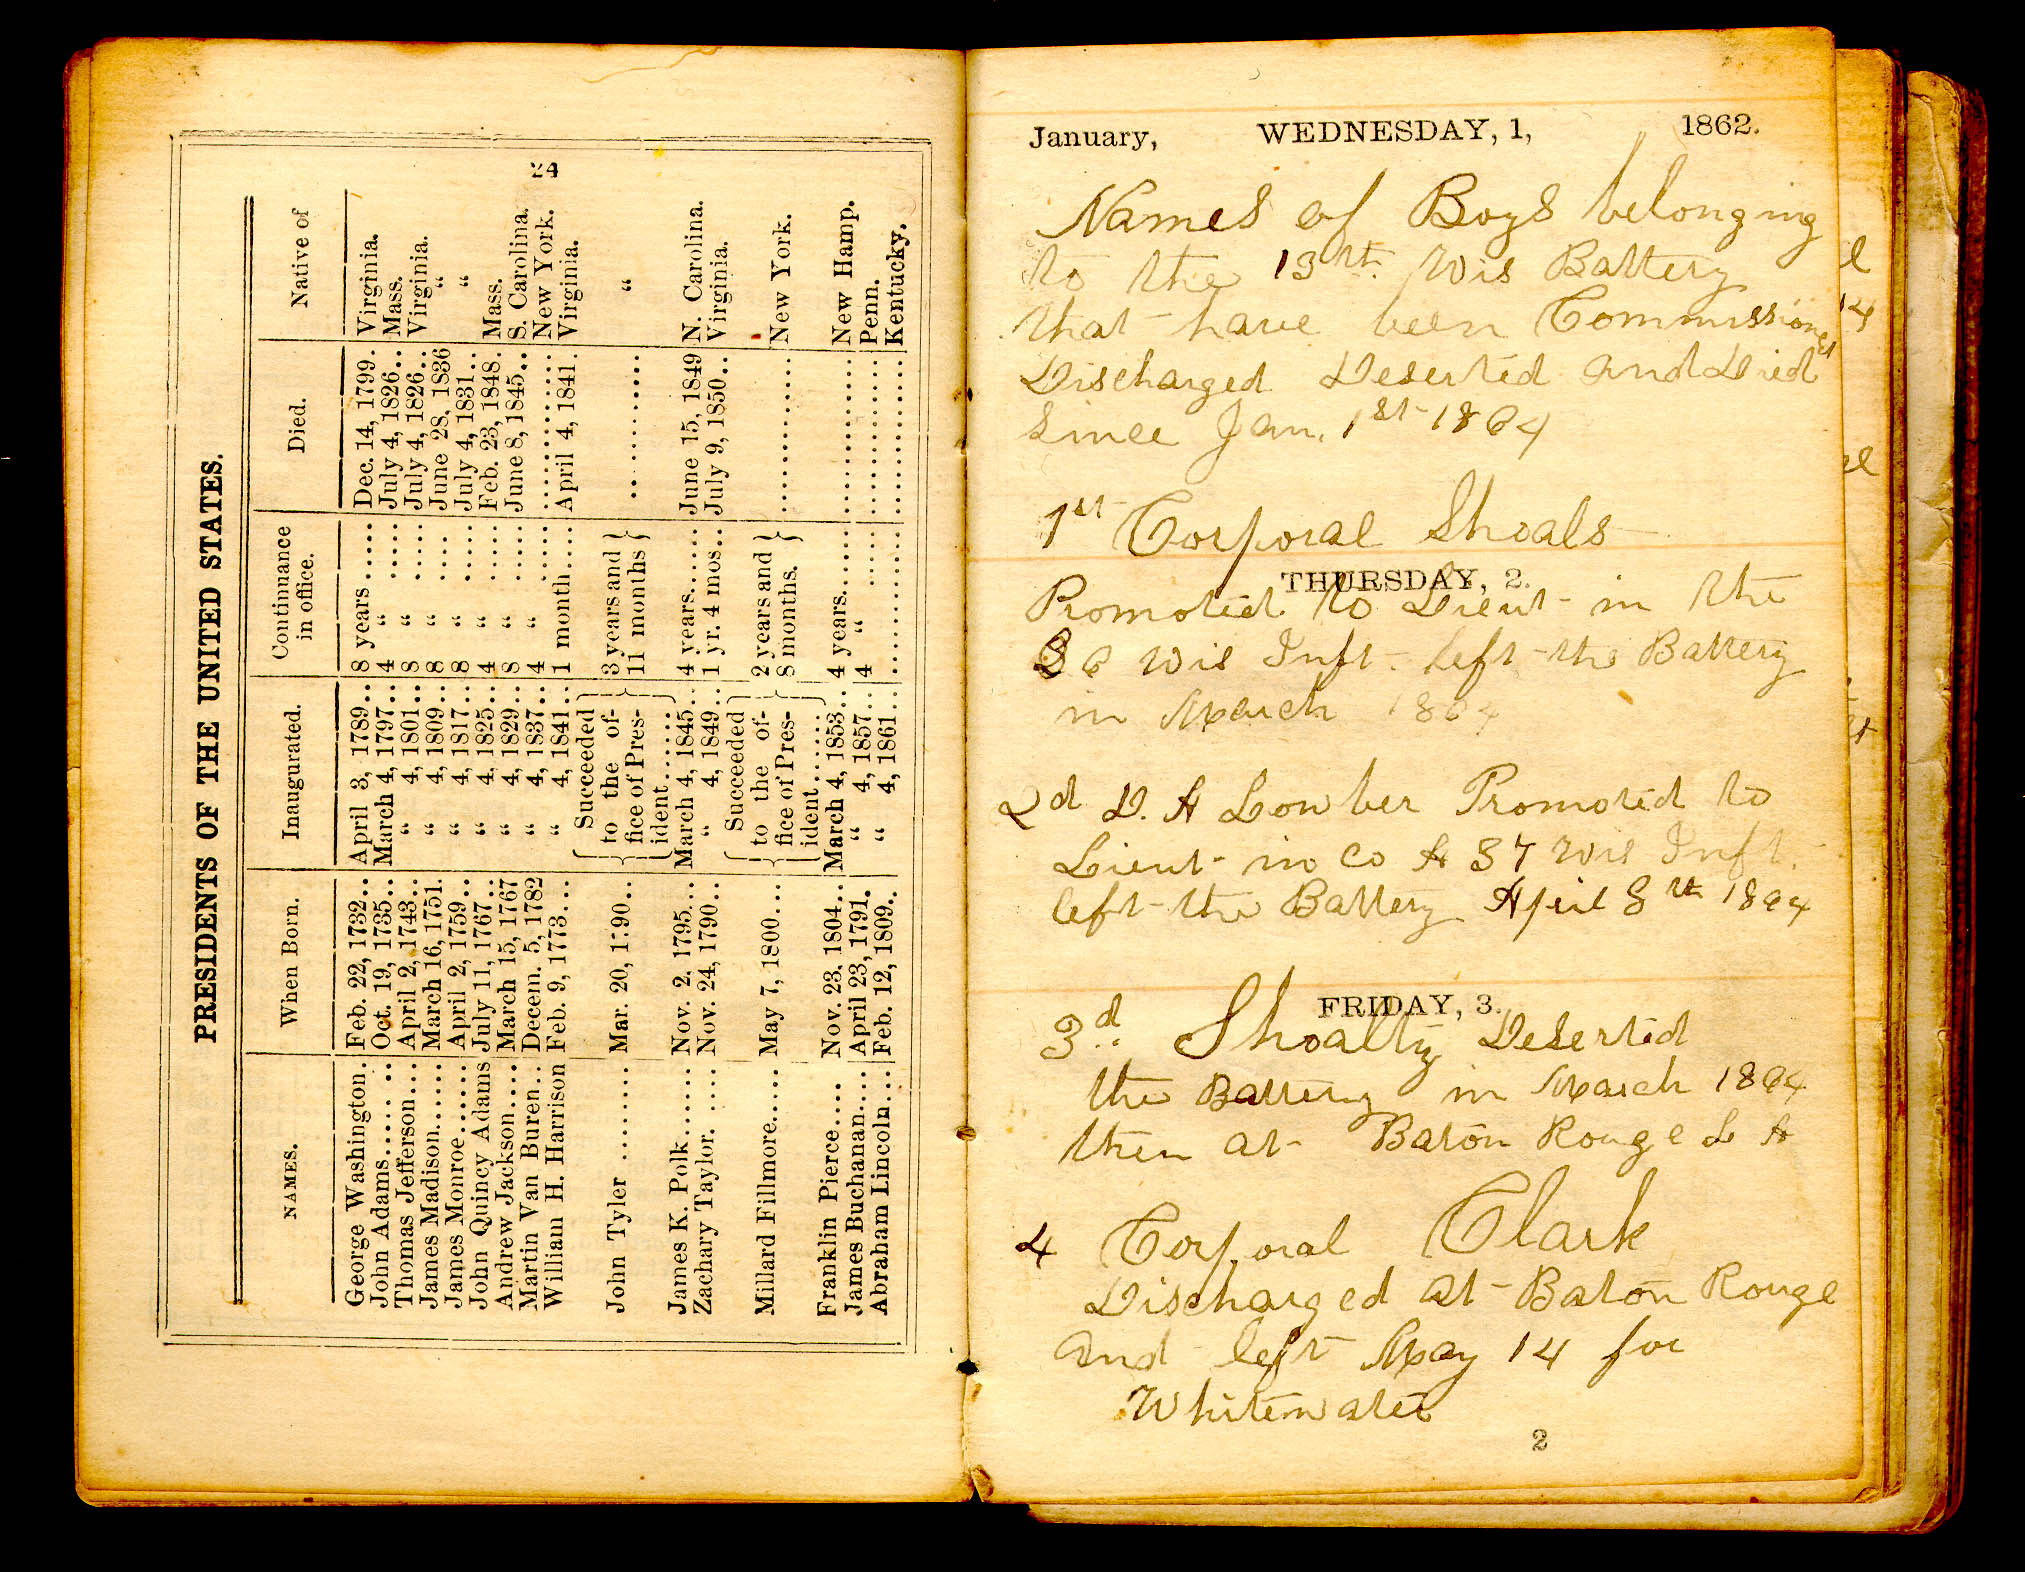 24
PRESIDENTS OF THE UNITED STATES.
NAMES. When Born. Inaugurated. Continuance in office. Died. Native of
George Washington. Feb. 22, 1732.. April 3, 1789.. 8 years ..... Dec. 14, 1799. Virginia.
John Adams...... .. Oct. 19, 1735.. March 4, 1797.. 4 “ ..... July 4, 1826.. Mass.
Thomas Jefferson.... April 2, 1743.. “ 4, 1801.. 8 “ ..... July 4, 1826.. Virginia.
James Madison...... March 16, 1751. “ 4, 1809.. 8 “ .... June 28, 1836 “
James Monroe...... April 2, 1759.. “ 4, 1817.. 8 “ ..... July 4, 1831.. “
John Quincy Adams July 11, 1767.. “ 4, 1825.. 4 “ ..... Feb. 23, 1848. Mass.
Andrew Jackson.... March 15, 1767 “ 4, 1829.. 8 “ ..... June 8, 1845.. S. Carolina.
Martin Van Buren... Decem. 5, 1782 “ 4, 1837.. 4 “ ..... ............ New York.
William H. Harrison Feb. 9, 1773... “ 4, 1841.. 1 month..... April 4, 1841. Virginia.
John Tyler ......... Mar. 20, 1790.. { Succeeded to the office of President...... } 3 years and 11 months } ............ “
James K. Polk...... Nov. 2, 1795... March 4, 1845.. 4 years....... June 15, 1849 N. Carolina.
Zachary Taylor. .... Nov. 24, 1790.. “ 4, 1849.. 1 yr. 4 mos.. July 9, 1850.. Virginia.
Millard Fillmore..... May 7, 1800... { Succeeded to the office of President...... } 2 years and 8 months. } ............ New York.
Franklin Pierce..... Nov. 23, 1804.. March 4, 1853.. 4 years....... ............ New Hamp.
James Buchanan.... April 23, 1791. “ 4, 1857.. 4 “ ..... ............ Penn.
Abraham Lincoln.... Feb. 12, 1809.. “ 4, 1861.. ............ ............ Kentucky.
January, WEDNESDAY, 1, 1862.
Names of Boys belonging
to the 13th Wis Battery
that have been Commissioned
Discharged Deserted and Died
Since Jan. 1st 1864
1st Corporal Shoals
THURSDAY, 2.
Promoted to Lieut in the
36 Wis Inft. left the Battery
in March 1864
2d D. A Lowber Promoted to
Lieut in Co A 37 Wis Inft.
left the Battery April 8th 1864
FRIDAY, 3.
3d Shoalty Deserted
the Battery in March 1864
then at Baton Rouge L A
4 Corporal Clark
Discharged at Baton Rouge
and left May 14 for
Whitewater
2